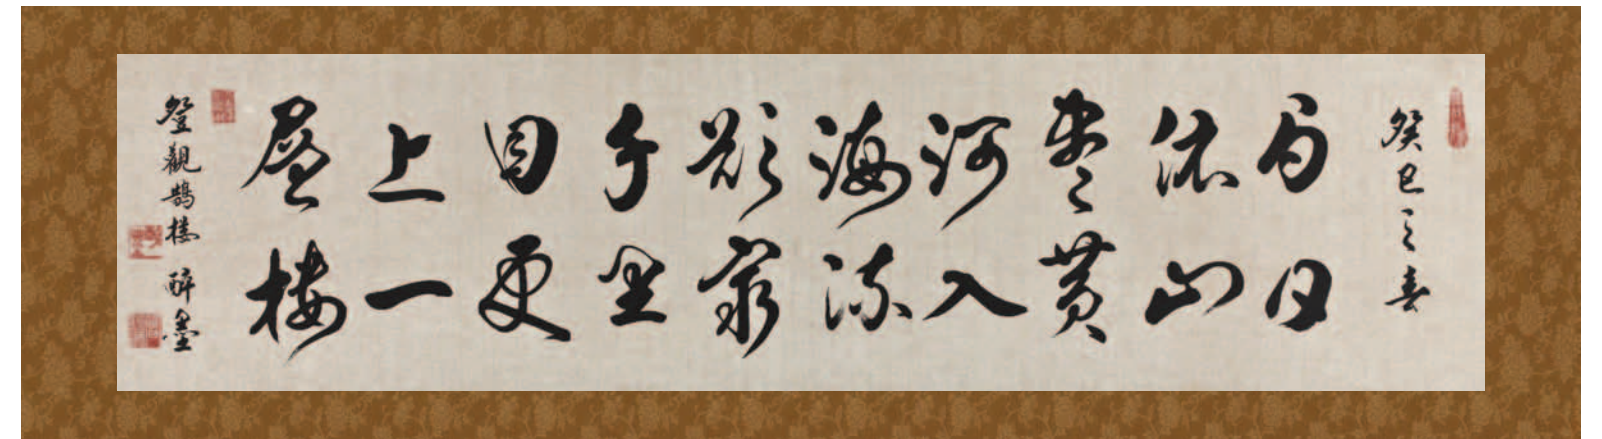 癸巳之春
白日
依山
盡黃
河入
海流
欲窮
千里
目更
上一
層樓
登觀鵲樓 醉墨